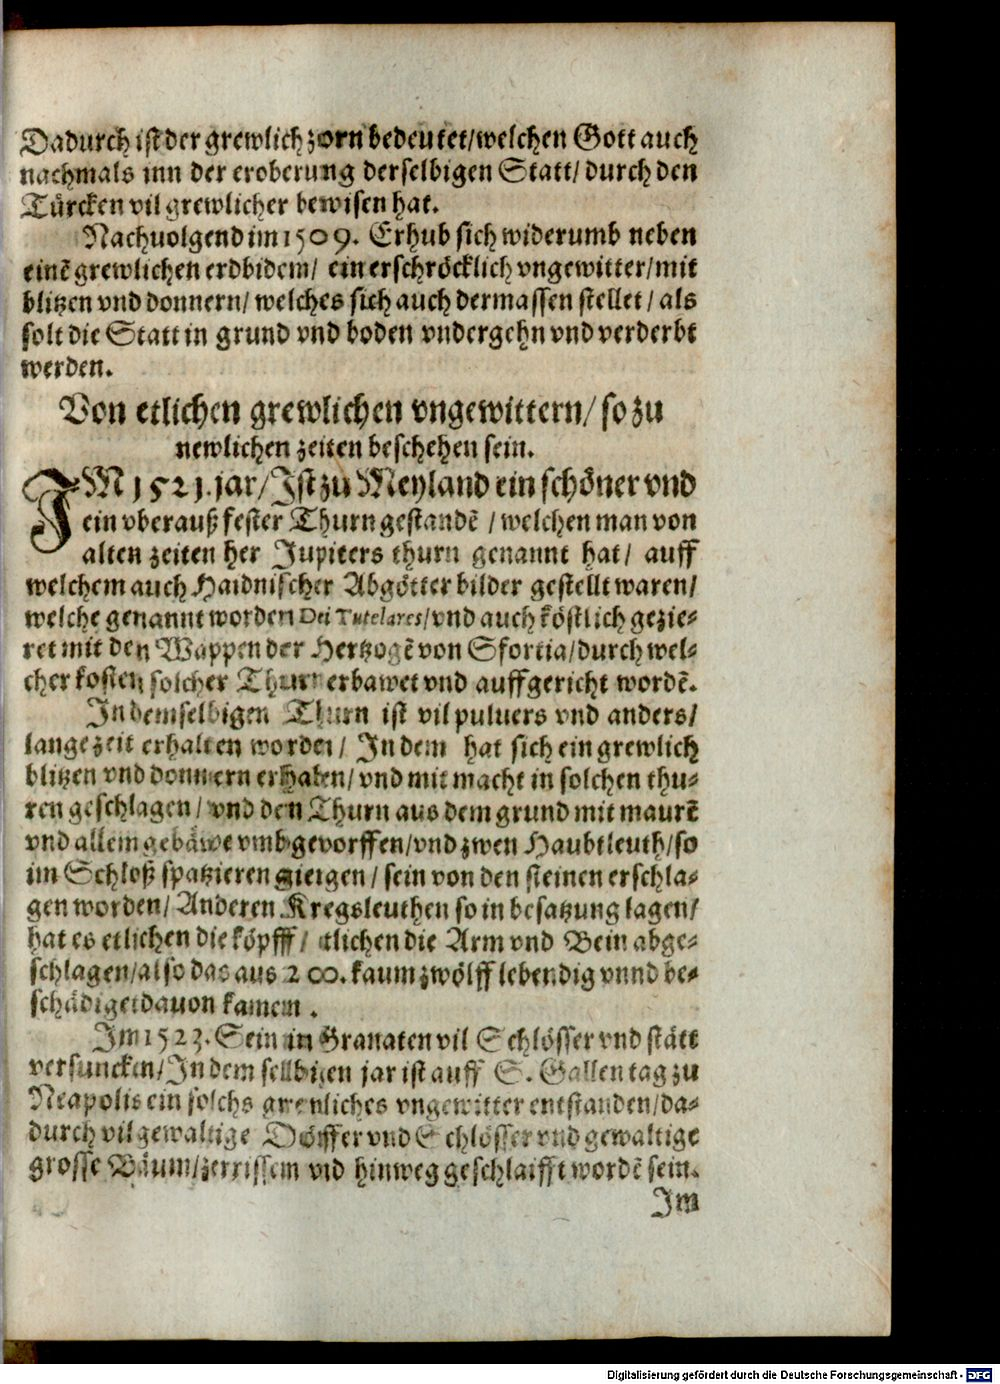 Dadurch ist der grewlich zorn bedeutet/welchen Gott auch
nachmals inn der eroberung derselbigen Statt/durch den
Türcken vil grewlicher bewisen hat.
Nachuolgend im 1509. Erhub sich widerumb neben
einē grewlichen erdbidem/ ein erschröcklich vngewitter/mit
blitzen vnd donnern/welches sich auch dermassen stellet/als
solt die Statt in grund vnd boden vndergehn vnd verderbt
werden.
Von etlichen grewlichen vngewittern/so zu
newlichen zeiten beschehen sein.
IM 1521.jar/Ist zu Meyland ein schöner vnd
ein vberauß fester Thurn gestandē /welchen man von
alten zeiten her Jupiters thurn genannt hat/ auff
welchem auch Haidnischer Abgötter bilder gestellt waren/
welche genannt worden Dei Tutelares/vnd auch köstlich gezie-
ret mit den Wappen der Hertzogē von Sfortia/durch wel-
cher kosten solcher Thurn erbawet vnd auffgericht wordē.
In demselbigen Thurn ist vil puluers vnd anders/
lange zeit erhalten worden/ In dem hat sich ein grewlich
blitzen vnd donnern erhaben/vnd mit macht in solchen thu-
ren geschlagen/ vnd den Thurn aus dem grund mit maurē
vnd allem gebäwe vmbgevorffen/vnd zwen Haubtleuth/so
im Schloß spatzieren gieigen/ sein von den steinen erschla-
gen worden/ Anderen Kregsleuthen so in besatzung lagen/
hat es etlichen die köpfff/ etlichen die Arm vnd Bein abge-
schlagen/also das aus 200. kaum zwölff lebendig vnnd be-
schädiget dauon kamen.
Im 1523. Sein in Granaten vil Schlösser vnd stätt
versuncken/In dem sellbigen jar ist auff S. Gallen tag zu
Neapolis ein solchs grewliches vngewitter entstanden/da-
durch vil gewaltige Dörffer vnd Schlösser vnd gewaltige
grosse Bäum/zerrissem vnd hinweg geschlaifft wordē sein.
Im
Digitalisierung gefördert durch die Deutsche Forschungsgemeinschaft - DFG